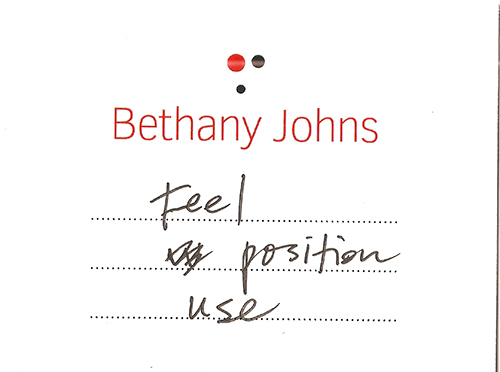 Bethany Johns
Feel
position
use